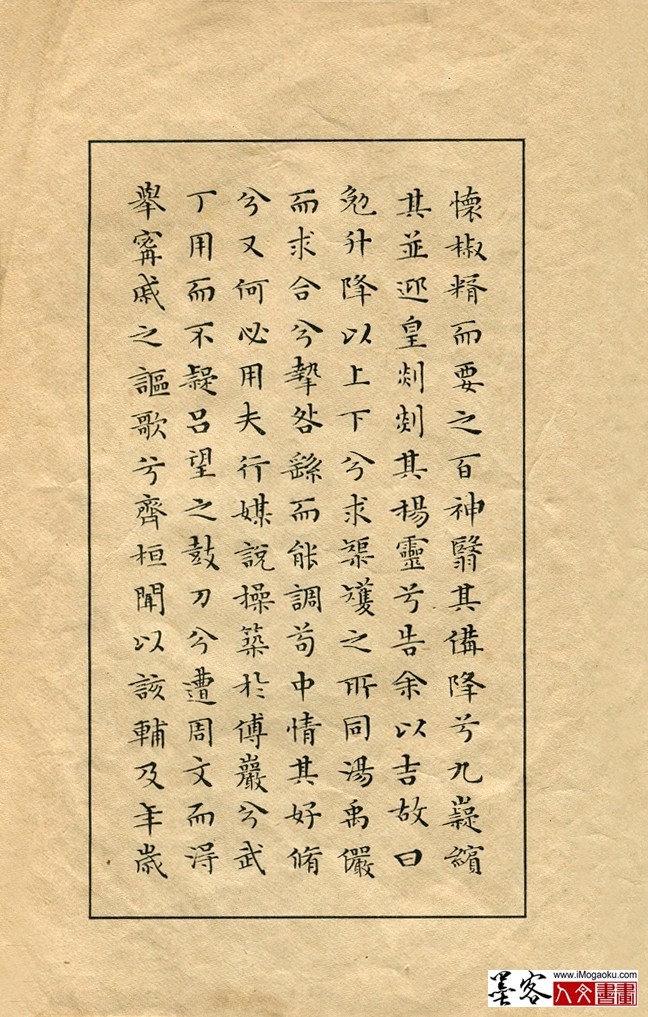 懷椒糈而要之百神翳其備降兮九嶷繽
其並迎皇剡剡其揚靈兮告余以吉故曰
勉升降以上下兮求榘矱之所同湯禹儼
而求合兮摯咎繇而能調苟中情其好脩
兮又何必用夫行媒說操築於傅巖兮武
丁用而不疑呂望之鼓刀兮遭周文而得
舉甯戚之謳歌兮齊桓聞以該輔及年歲
墨客
www.iMogaoku.com
人文書畫